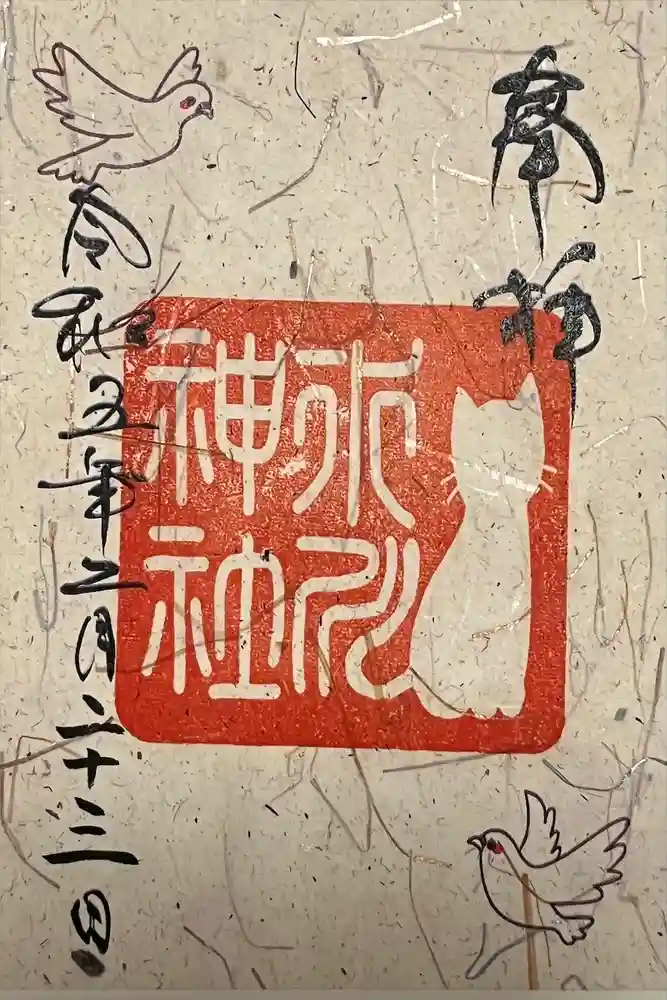 奉拝
氷川
神社
令和五年二月二十三日